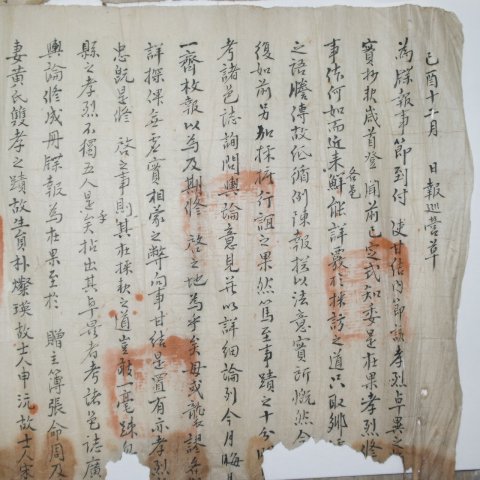 己酉十二月 日報巡營草
爲牒報事節到付 使甘結內節該孝烈卓異之
實抄款成首登聞前已定式知委是在果孝烈修
事體何如而近來鮮能詳覈於採訪之道只取鄉
各邑
之語謄傳故紙循例陳報揆以法意實所慨然今
復如前另加採擇行誼之果然篤至事蹟之十分
考諸邑誌詢問輿論意見並以詳細論列今月晦
一齊枚報以爲及期修 啓之地爲乎矣毋或
詳採俾無虛實相蒙之弊向事甘結是置有亦孝烈
忠旣是修 啓之事則其在採款之道豈敢一毫踈
縣之孝烈不獨五人是乎矣拈出其卓異者考諸邑誌廣
輿論修成冊牒報爲在果至於 贈主簿張命周及
妻黃氏雙孝之蹟故生員朴燦瑛故士人申沆故士人宋